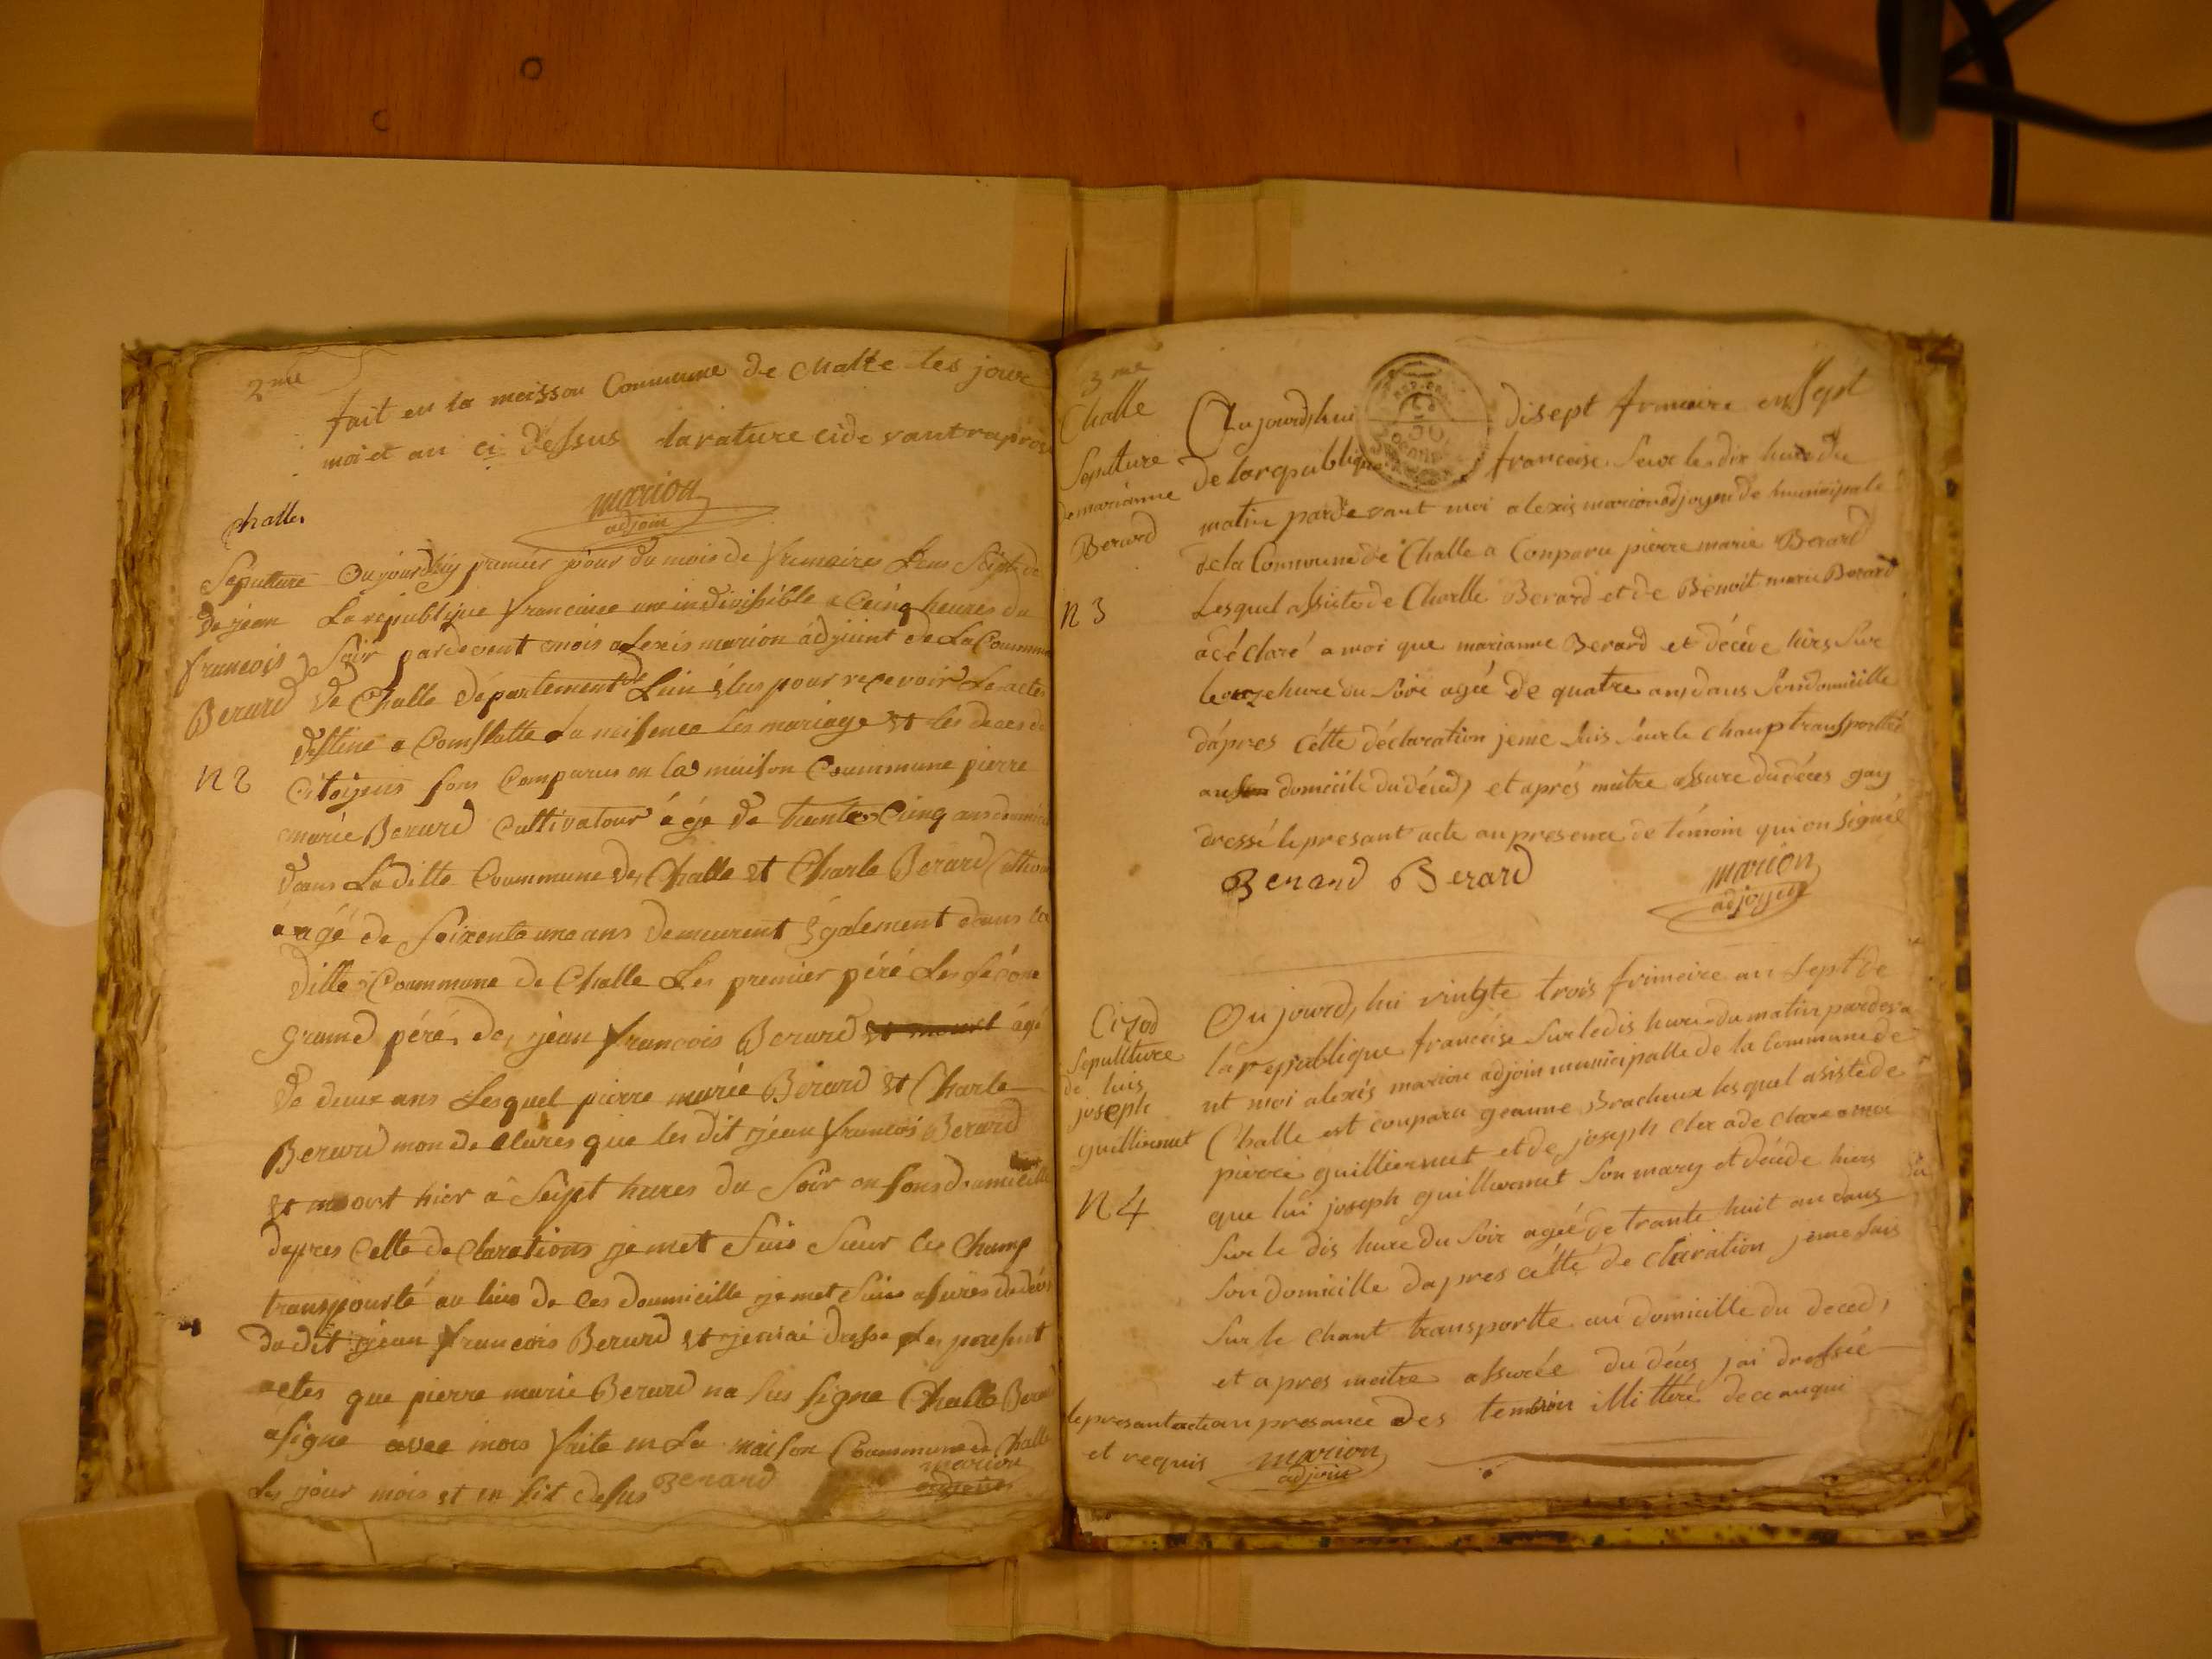 2me
fait en la maisson Commune de Challe les jour
moi et an ci dessus la rature cide vant
marion
adjoin
challe
Sepulture
de jean
francois
Berard
N 2
Oujourdhuy premier jour du mois de frimaires
La republique francaise une indivisible a Ceinq heures du
Soir pardevent mois alexis marion adjoint de La Commune
de Challe département de Lain élus pour recevoir Les actes
destiné a Comstatte La neisence les mariage et les deces de
Citoyens sons Comparus en la maison Coummune pierre
marie Berard Cultivatour égé de trente Cinq ans
dans La ditte Coummune de Challe et Charle Berard
agé de Soixente une ans demeurent également dans la
ditte Coummune de Challe Les premier péré Les
grand péré de jean francois Berard agé
de deux ans Lesquel pierre marie Berard et Charle
Berard mon de Clares que les dit jéan francois Berard
et mort hier a Seipt heures du Soir on sons doumicille
dapres Cette de Clarations je met suis Sæur les Champ
transpourté au lieu de Ces doumicille je met suis asures du
du dit jéan francois Berard et jeniai dresse Les present
actes que pierre marie Berard na sus signe Challe Berard
a signe avec mois faite en La maison Coummune de Challe
Les jour mois et en sit desus Berard
marion
adjoin
3me
Challe
Sepulture
de marianne
Berard
N 3
Aujourdhui disept frimaire an sept
De la republique francaise Sur les dix hure du
matin pardevant moi alexis marion adjoyen de municipale
de la Commune de Challe a Conparu pierre marie Berard
Lesquel assiste de Charlle Berard et de Benoit marie Berard
a déclaré a moi que marianne Berard et décéde hirs Sur
le onze hure du Soir agée de quatre ans dans Son domicille
dápres Cétte déclaration je me Suis Sur le Champ transportté
au domicile du déced, et aprés mêtre assure du déces gay
dressé le presant acte an presence de témoin qui on signé
Berard Berard
marion
adjoyen
Cizod
Sepullture
de luis
joseph
guilliermet
N 4
Oujourd,hui vingte trois frimeire an sept de
la republique franceise Sur le dis hure du matin pardeva
nt moi alexis marion adjoin municipalle de la Commune de
Challe est conparu geanne Bracheux lesquel asiste de
pierre guilliermet et de joseph clex a de Clare a moi
que lui joseph guilliermet Son mary et décéde hiers
Sur le dis hure du Soir agée de trante huit an dans
Son domicille dapres cétté de claration je me Suis
Sur le Chant transportte au domicille du deced,
et apres meitre assurée du déces jai dressée
le presant acte an presance des temoin illitteré de ce anqui
et requis marion
adjoin